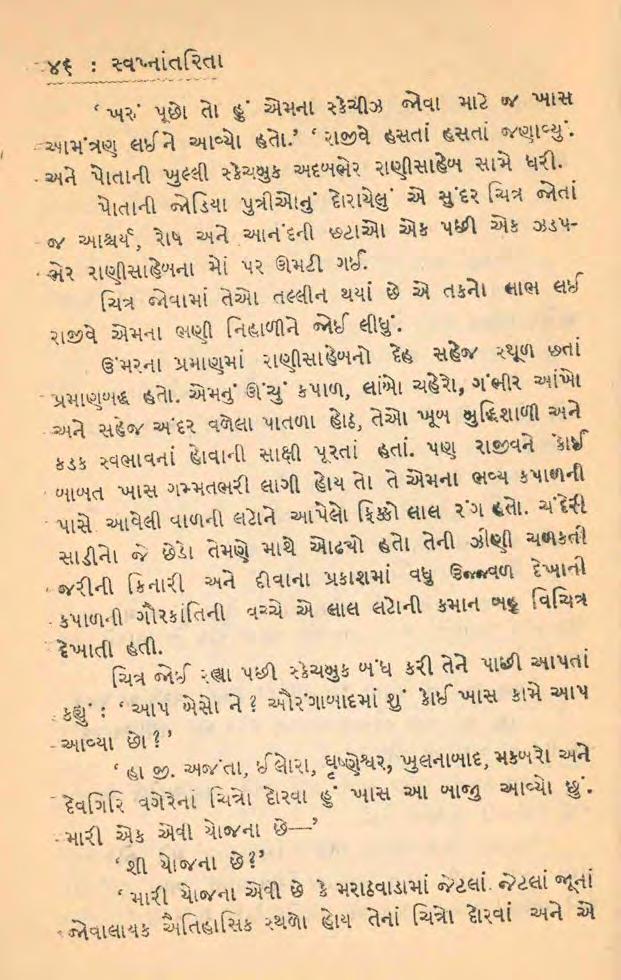 ૪૬ : સ્વપ્નાંતરિતા
‘ ખરું પૂછો તો હું એમના સ્કેચીઝ જોવા માટે જ ખાસ
આમંત્રણ લઈને આવ્યો હતો.’ ‘ રાજીવે હસતાં હસતાં જણાવ્યું.
અને પોતાની ખુલ્લી સ્કેચબુક અદબભેર રાણીસાહેબ સામે ધરી.
પોતાની જોડિયા પુત્રીઓનું દોરાયેલું એ સુંદર ચિત્ર જોતાં
જ આશ્ચર્ય, રોષ અને આનંદની છટાઓ એક પછી એક ઝડપ-
ભેર રાણીસાહેબના મોં પર ઊમટી ગઈ.
ચિત્ર જોવામાં તેઓ તલ્લીન થયાં છે એ તકનો લાભ લઈ
રાજીવે એમના ભણી નિહાળીને જોઈ લીધું.
ઉંમરના પ્રમાણમાં રાણીસાહેબનો દેહ સહેજ સ્થૂળ છતાં
પ્રમાણબદ્ધ હતો. એમનું ઊંચું કપાળ, લાંબો ચહેરો, ગંભીર આંખો
અને સહેજ અંદર વળેલા પાતળા હોઠ, તેઓ ખૂબ બુદ્ધિશાળી અને
કડક સ્વભાવનાં હોવાની સાક્ષી પૂરતાં હતાં. પણ રાજીવને કોઈ
બાબત ખાસ ગમ્મતભરી લાગી હોય તો તે એમના ભવ્ય કપાળની
પાસે આવેલી વાળની લટોને આપેલો ફિક્કો લાલ રંગ હતો. ચંદેરી
સાડીનો જે છેડો તેમણે માથે ઓઢ્યો હતો તેની ઝીણી ચળકતી
જરીની કિનારી અને દીવાના પ્રકાશમાં વધુ ઉજ્જવળ દેખાની
કપાળની ગૌરકાંતિની વચ્ચે એ લાલ લટોની કમાન બહુ વિચિત્ર
દેખાતી હતી.
ચિત્ર જોઈ રહ્યા પછી સ્કેચબુક બંધ કરી તેને પાછી આપતાં
કહ્યું : ‘ આપ બેસો ને ? ઔરંગાબાદમાં શું કોઈ ખાસ કામે આપ
આવ્યા છો ?’
‘ હા જી. અજંતા, ઈલોરા, ઘૃષ્ણેશ્વર, ખુલનાબાદ, મકબરો અને
દેવગિરિ વગેરેનાં ચિત્રો દોરવા હું ખાસ આ બાજુ આવ્યો છું.
મારી એક એવી યોજના છે—’
‘ શી યોજના છે ?’
‘ મારી યોજના એવી છે કે મરાઠવાડામાં જેટલાં જેટલાં જૂનાં
જોવાલાયક ઐતિહાસિક સ્થળો હોય તેનાં ચિત્રો દોરવાં અને એ